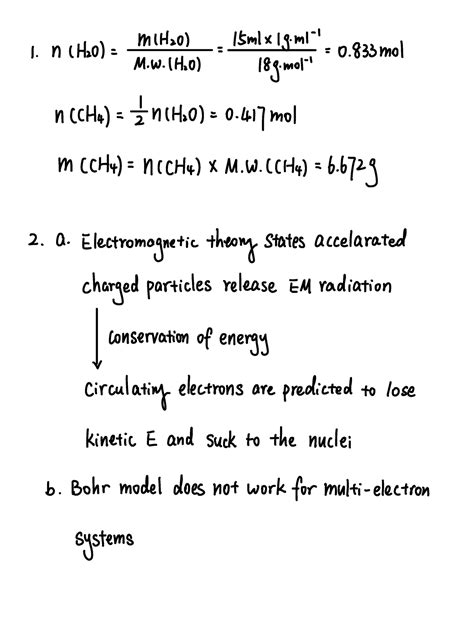 1. n (H₂O) = m(H₂O) / M.W.(H₂O) = 15ml × 1g·ml⁻¹ / 18g·mol⁻¹ = 0.833mol
n (CH₄) = 1/2 n(H₂O) = 0.417 mol
m (CH₄) = n(CH₄) × M.W.(CH₄) = 6.672g
2. a. Electromagnetic theory states accelarated
charged particles release EM radiation
↓ conservation of energy
Circulating electrons are predicted to lose
kinetic E and suck to the nuclei
b. Bohr model does not work for multi-electron
systems